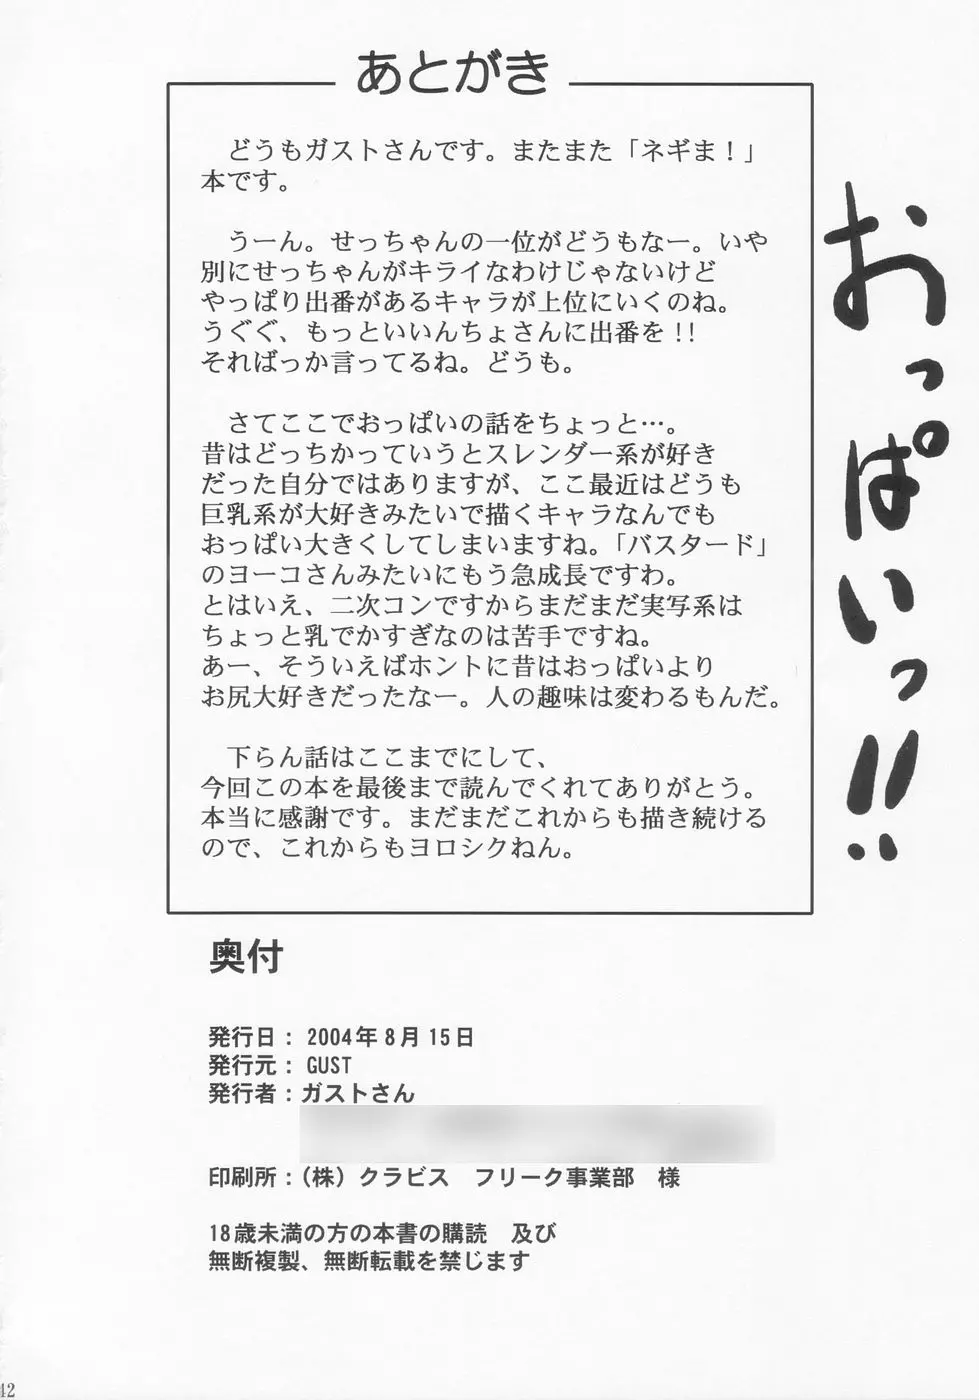 あとがき
　どうもガストさんです。またまた「ネギま！」
本です。
　うーん。せっちゃんの一位がどうもなー。いや
別にせっちゃんがキライなわけじゃないけど
やっぱり出番があるキャラが上位にいくのね。
うぐぐ、もっといいんちょさんに出番を!!
そればっか言ってるね。どうも。
　さてここでおっぱいの話をちょっと…。
昔はどっちかっていうとスレンダー系が好き
だった自分ではありますが、ここ最近はどうも
巨乳系が大好きみたいで描くキャラなんでも
おっぱい大きくしてしまいますね。「バスタード」
のヨーコさんみたいにもう急成長ですわ。
とはいえ、二次コンですからまだまだ実写系は
ちょっと乳でかすぎなのは苦手ですね。
あー、そういえばホントに昔はおっぱいより
お尻大好きだったなー。人の趣味は変わるもんだ。
　下らん話はここまでにして、
今回この本を最後まで読んでくれてありがとう。
本当に感謝です。まだまだこれからも描き続ける
ので、これからもヨロシクねん。
おっぱいっ!!
奥付
発行日： 2004年8月15日
発行元： GUST
発行者：ガストさん
印刷所：（株）クラビス　フリーク事業部　様
18歳未満の方の本書の購読　及び
無断複製、無断転載を禁じます
42